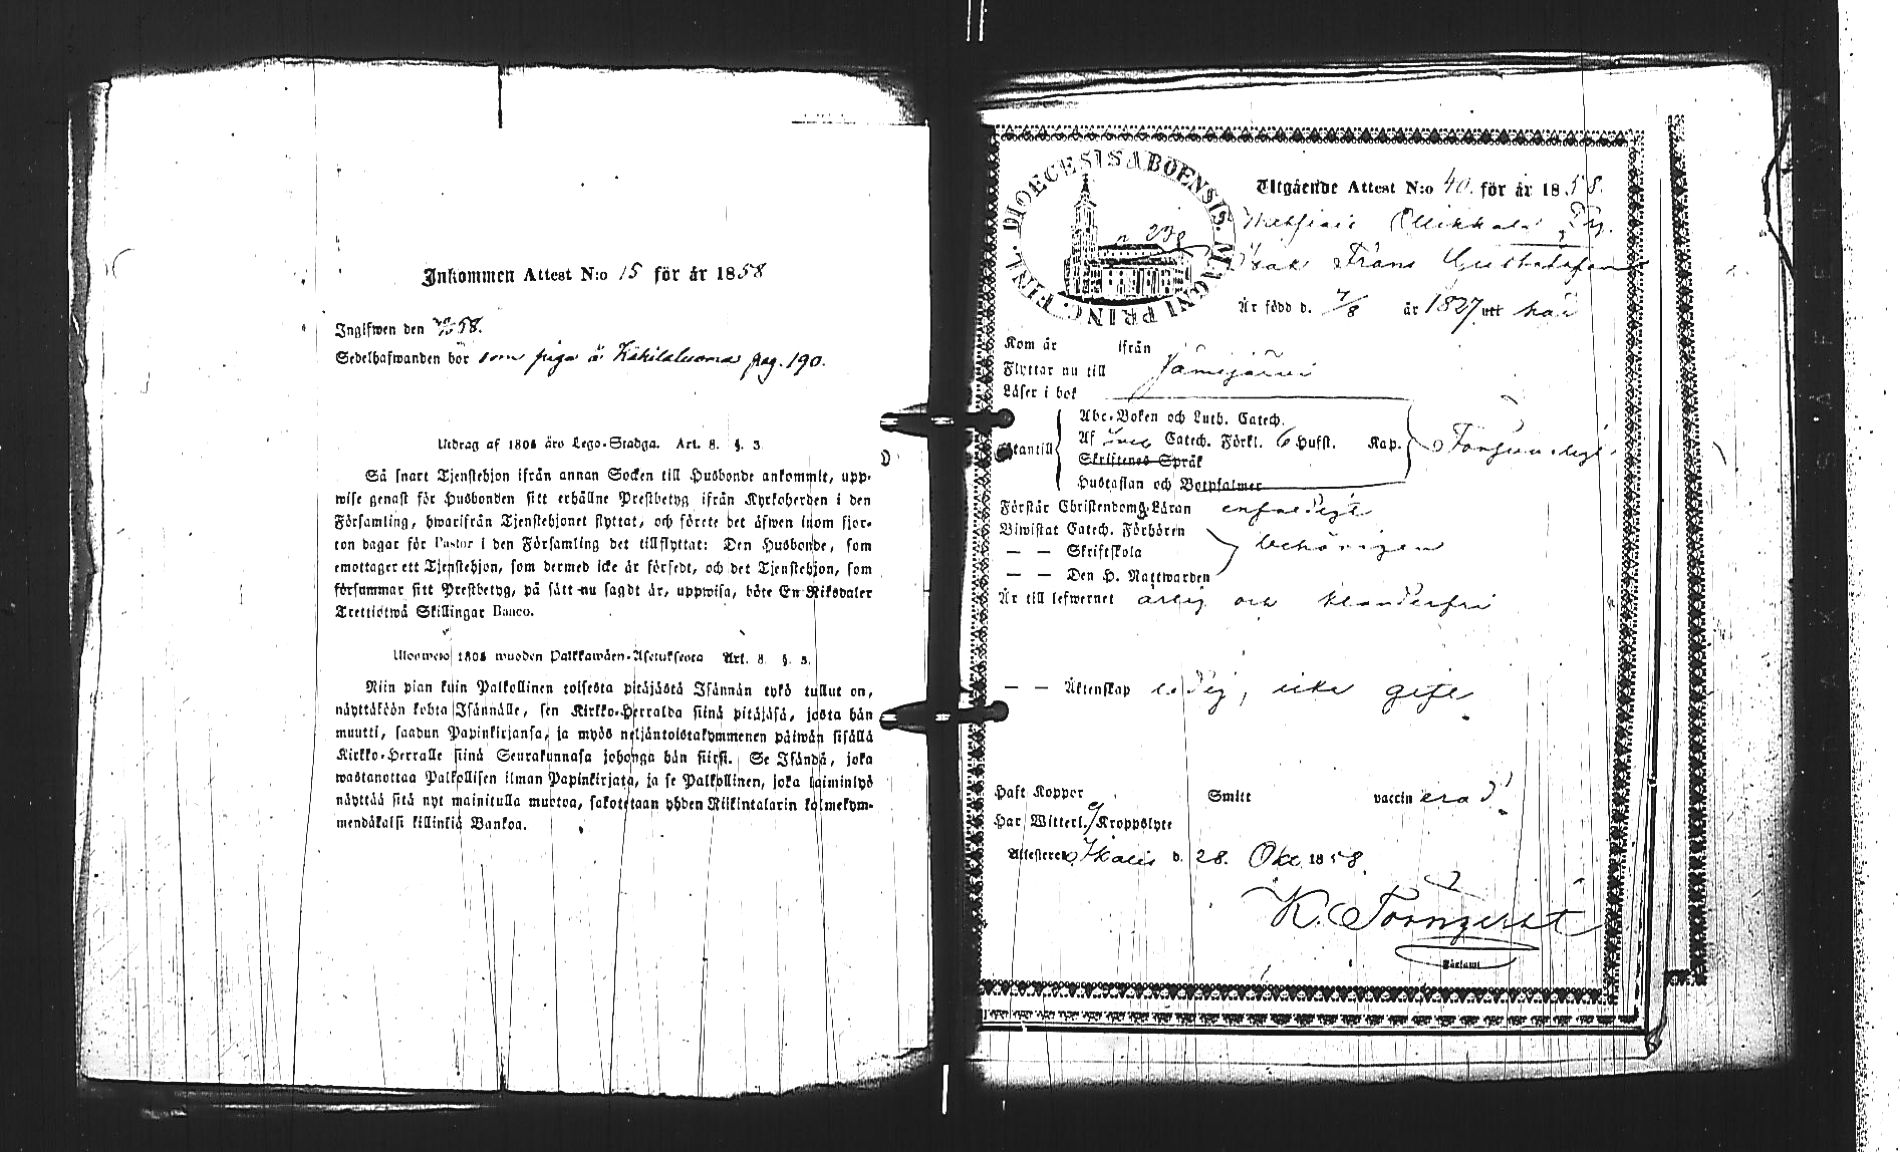 Inkommen Attest N:o 15 för år 1858
Ingifwen den 58.
Sedelhafwanden bör som piga å Käkilaluoma pag. 190.
Utdrag af 1805 års Lego-Stadga. Art. 8. §. 3.
Så snart Tjenstehjon ifrån annan Socken till Husbonde ankommit, upp-
wise genast för Husbonden sitt erhållne Prestbetyg ifrån Kyrkoherden i den
Församling, hwarifrån Tjenstehjonet flyttat, och förete det äfwen inom fjor-
ton dagar för Pastor i den Församling det tillflyttat: Den Husbonde, som
emottager ett Tjenstehjon, som dermed icke är försedt, och det Tjenstehjon, som
försummar sitt Prestbetyg, på sätt nu sagdt är, uppwisa, böte En Riksdaler
Trettiotwå Skillingar Banco.
Ulosweto 1805 wuoden Palkkawäen-Asetuksesta Art. 8. §. 3.
Niin pian kuin Palkollinen toisesta pitäjästä Isännän tykö tullut on,
näyttäköön kohta Isännälle, sen Kirkko-Herralda siinä pitäjäsä, josta hän
muutti, saadun Papinkirjansa, ja myös neljäntoistakymmenen päiwän sisällä
Kirkko-Herralle siinä Seurakunnasa johonga hän siirsi. Se Isändä, joka
wastanottaa Palkollisen ilman Papinkirjata, ja se Palkollinen, joka laiminlyö
näyttää sitä nyt mainitulla muotoa, sakotetaan yhden Riikintalarin kolmekym-
mendäkaksi killinkiä Bankoa.
DIOECESIS ABOENSIS. MAGNI PRINC. FINL.
Utgående Attest N:o 40. för år 1858.
Ollikkala
Isak Frans Gustafsson
Är född d. 7/8 år 1827 utt här
Kom år ifrån
Flyttar nu till Jämijärvi
Läser i bok
Utantill
Abc-Boken och Luth. Catech.
Af Catech. Förkl. 6 Hufst. Kap.
Skriftenes Språk
Hustaflan och Botpsalmer
Förstår Christendoms-Läran enfaldigt
Biwistat Catech. Förhören
— — Skriftskola behörigen
— — Den H. Nattwarden
Är till lefwernet ärlig och klanderfri
— — Äktenskap ledig, icke gift
Haft Koppor Smitt vaccinerad
Har Witterl. ej Kroppslyte
Attesterer Ikalis d. 28. Okt 1858.
K. Törnqvist